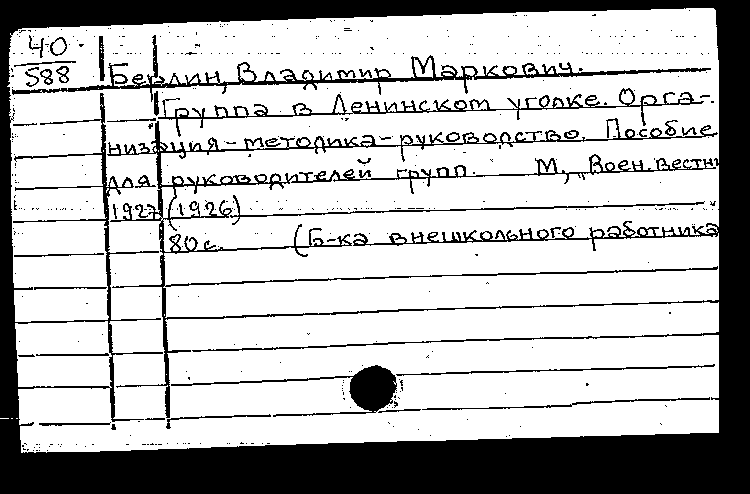 40
588
Берлин, Владимир Маркович.
Группа в Ленинском уголке. Орга-
низация - методика - руководство. Пособие
для руководителей групп. М., "Воен. вестни
1927 (1926)
80 с. (Б-ка внешкольного работника